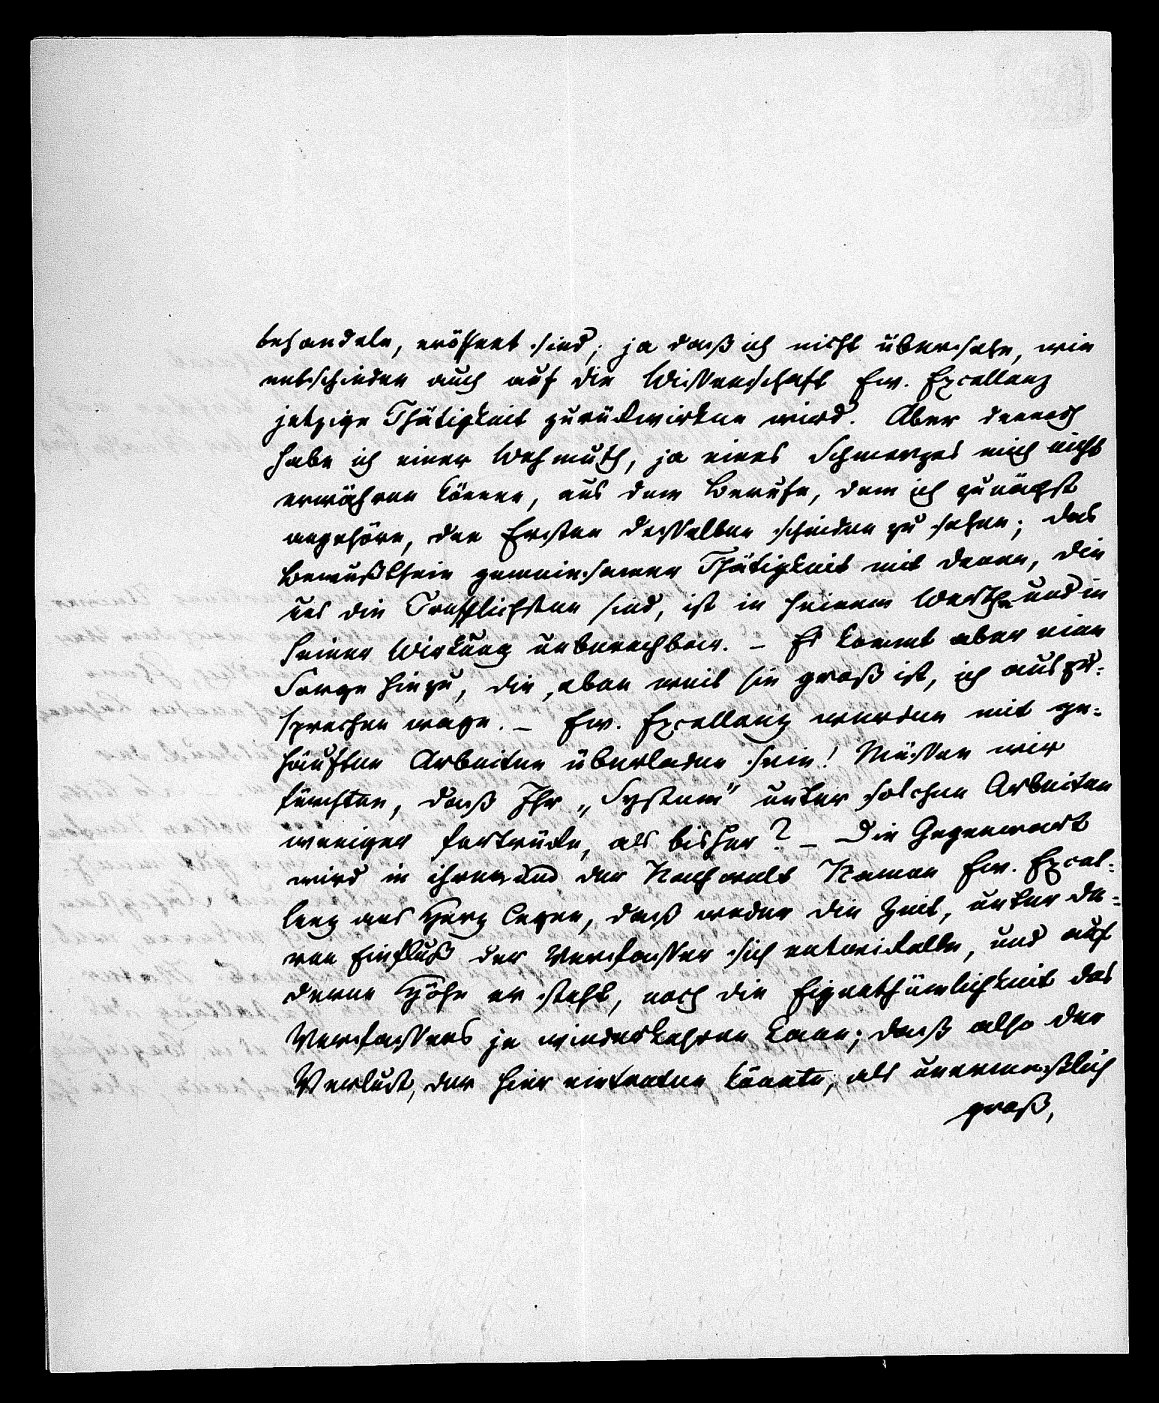 behandeln, eröffnet sind; ja daß ich nicht übersehe, wie
entschieden auch auf die Wissenschaft Ew. Excellenz
jetzige Thätigkeit zurückwirken wird. Aber dennoch
habe ich einer Wehmuth, ja eines Schmerzes mich nicht
erwähren können, aus dem Berufe, dem ich zunächst
angehöre, den Ersten desselben scheiden zu sehen; das
Bewußtsein gemeinsamer Thätigkeit mit denen, die
uns die Trefflichsten sind, ist in seinem Werthe und in
seiner Wirkung unberechbar. – Es kommt aber eine
Sorge hinzu, die, eben weil sie groß ist, ich auszu-
sprechen wage. – Ew. Excellenz werden mit ge-
häuften Arbeiten überladen sein! Müssen wir
fürchten, daß Ihr „System" unter solchen Arbeiten
weniger fortrücke, als bisher? – Die Gegenwart
wird in ihrem und der Nachwelt Namen Ew. Excel-
lenz ans Herz legen, daß weder die Zeit, unter de-
ren Einfluß der Verfasser sich entwickelte, und auf
deren Höhe er steht, noch die Eigenthümlichkeit des
Verfassers je wiederkehren kann; daß also der
Verlust, der hier eintreten könnte, als unermeßlich
groß,